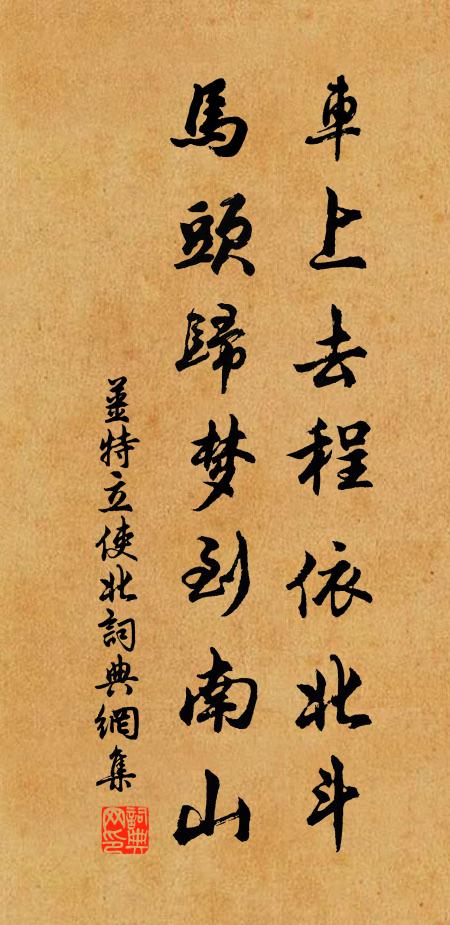 車上去程依北斗
馬頭歸梦到南山
姜特立使北詞典網集
詞典网印